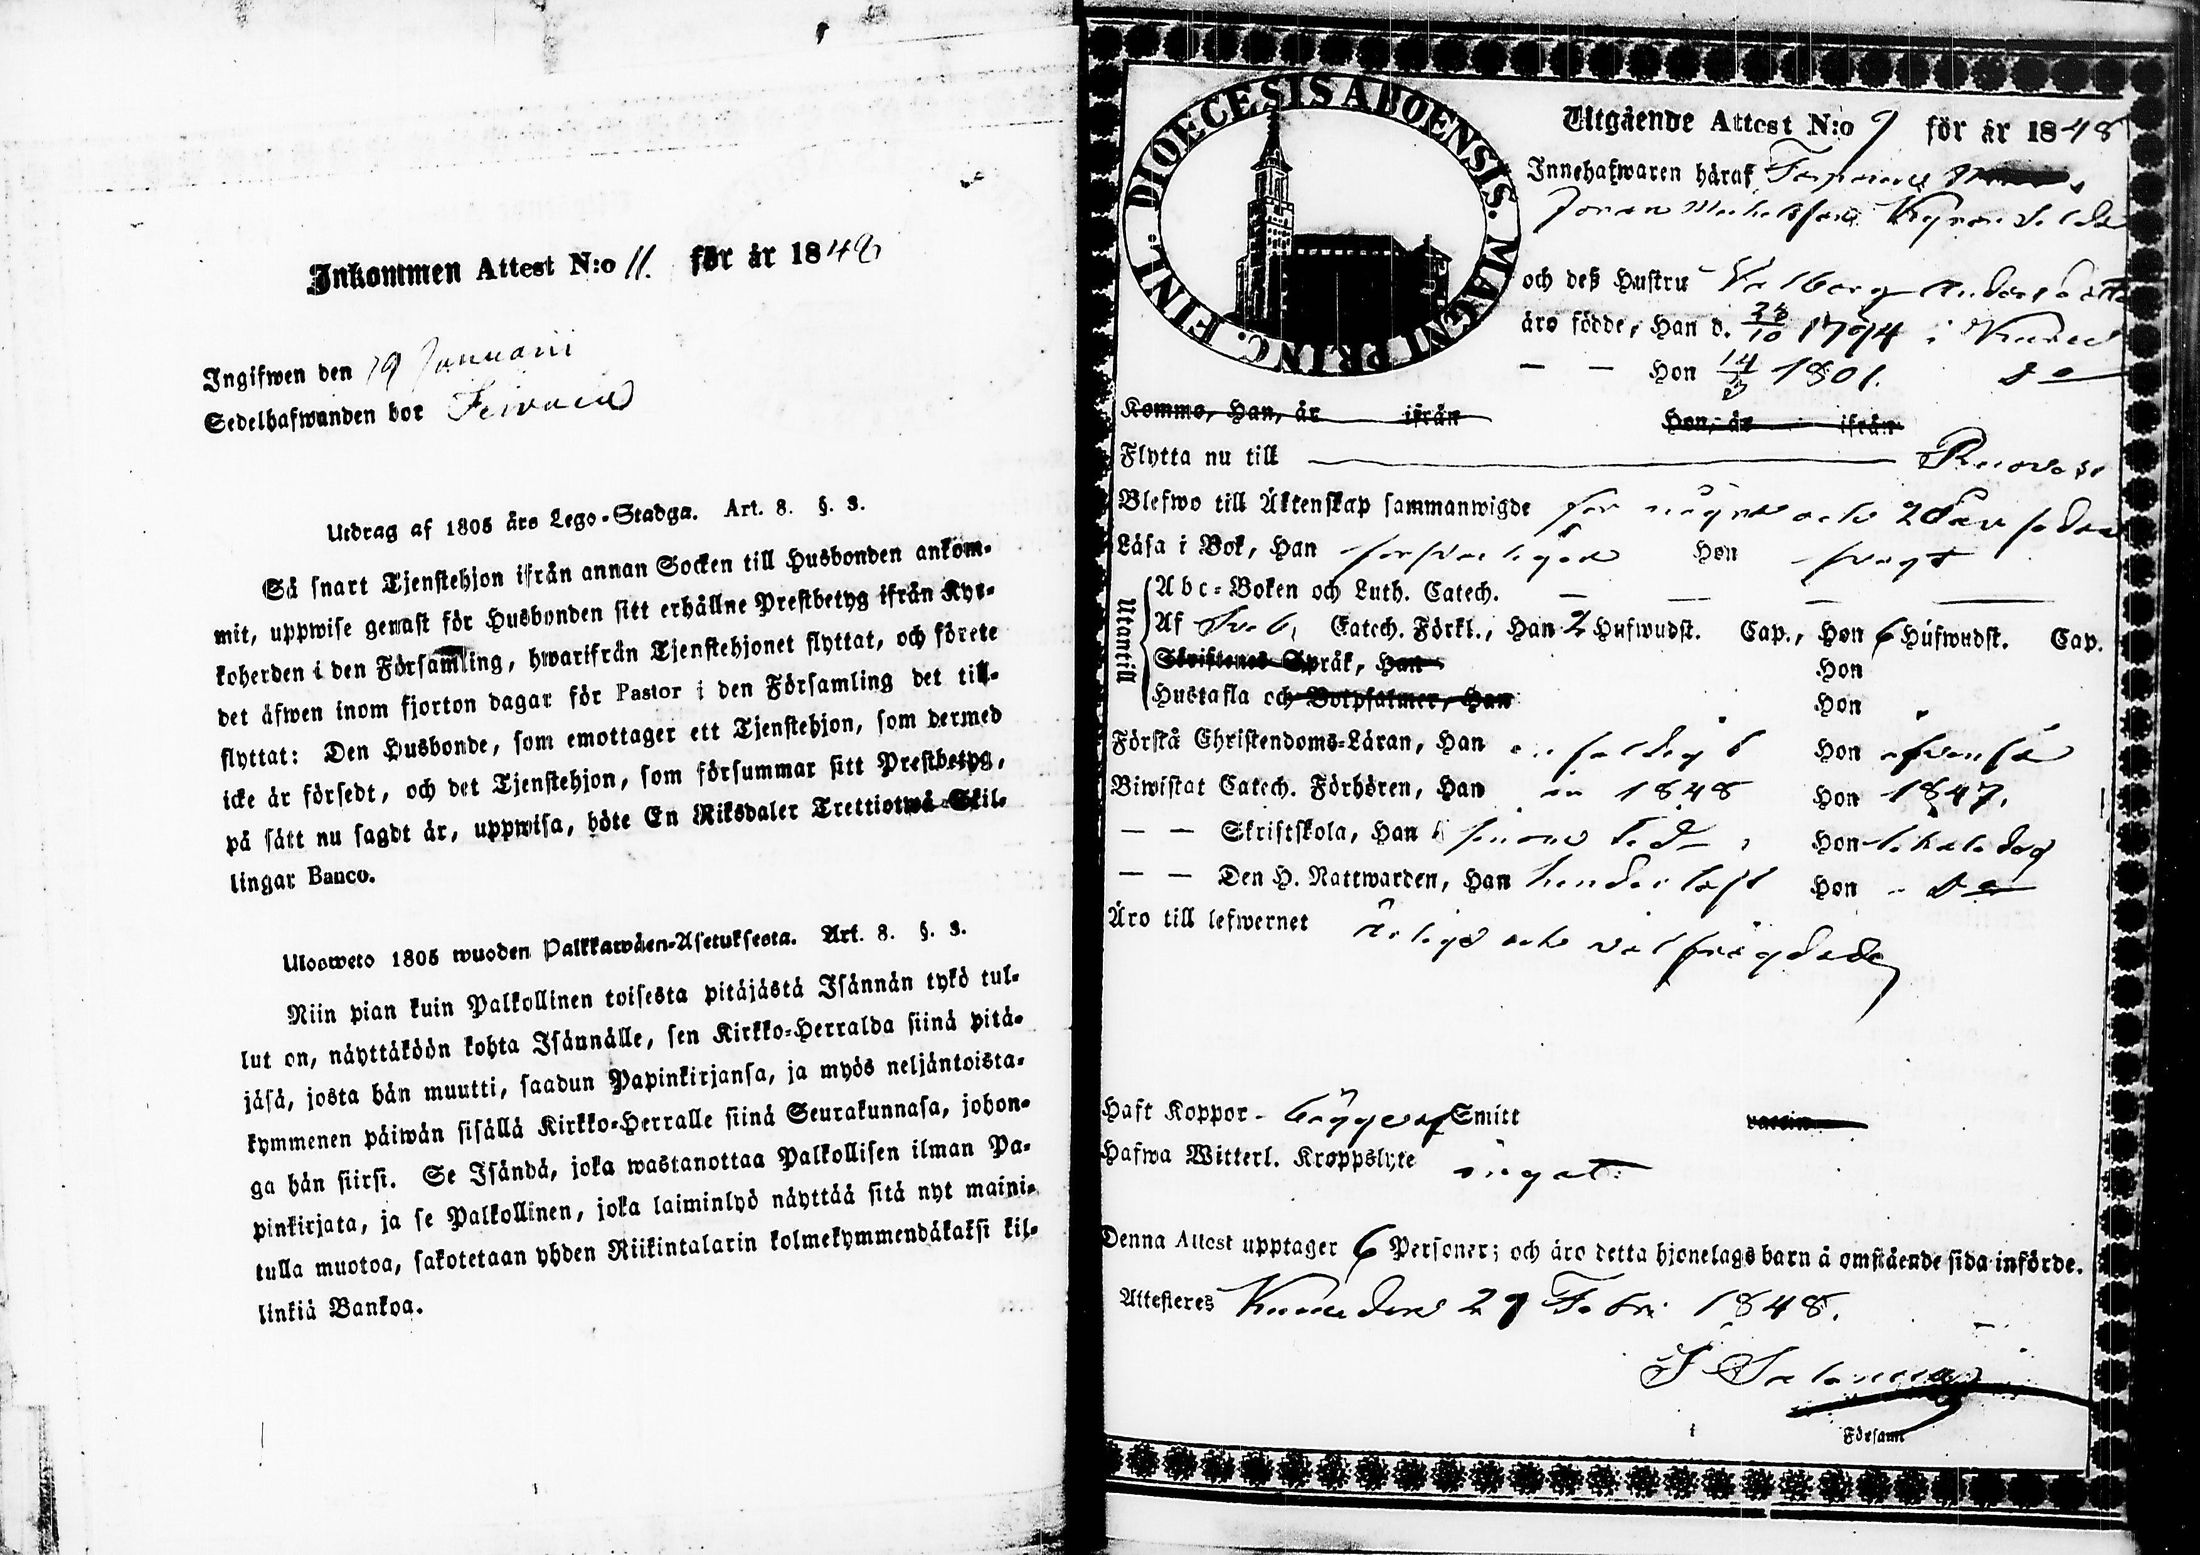 Inkommen Attest N:o 11. för år 184
Ingifwen den 19 Januarii
Sedelhafwanden bor
Utdrag af 1805 års Lego-Stadga. Art. 8. §. 3.
Så snart Tjenstehjon ifrån annan Socken till Husbonden ankom-
mit, uppwise genast för Husbonden sitt erhållne Prestbetyg ifrån Kyr-
koherden i den Församling, hwarifrån Tjenstehjonet flyttat, och förete
det äfwen inom fjorton dagar för Pastor i den Församling det till-
flyttat: Den Husbonde, som emottager ett Tjenstehjon, som dermed
icke är försedt, och det Tjenstehjon, som försummar sitt Prestbetyg,
på sätt nu sagdt är, uppwisa, böte En Riksdaler Trettiotwå Skil-
lingar Banco.
Ulosweto 1805 wuoden Palkkawäen-Asetuksesta. Art. 8. §. 3.
Niin pian kuin Palkollinen toisesta pitäjästä Isännän tykö tul-
lut on, näyttäköön kohta Isännälle, sen Kirkko-Herralda siinä pitä-
jäsä, josta hän muutti, saadun Papinkirjansa, ja myös neljäntoista-
kymmenen päiwän sisällä Kirkko-Herralle siinä Seurakunnasa, johon-
ga hän siirsi. Se Isändä, joka wastanottaa Palkollisen ilman Pa-
pinkirjata, ja se Palkollinen, joka laiminlyö näyttää sitä nyt maini-
tulla muotoa, sakotetaan yhden Riikintalarin kolmekymmendäkaksi kil-
linkiä Bankoa.
DIOECESIS ABOENSIS. MAGNI PRINC. FINL.
Utgående Attest N:o 9 för år 1848
Innehafwaren häraf
Johan Michelsson
och deß Hustru Walborg Andersdotter
äro födde, Han d. 28/10 1794 i
— — Hon 14/3 1801. do
Kommo, Han, år ifrån Hon, år ifrån
Flytta nu till
Blefwo till Äktenskap sammanwigde för några och 20 år sedan
Läsa i Bok, Han försvarligen Hon svagt
Utantill
Abc-Boken och Luth. Catech. — — — —
Af Catech. Förkl., Han 2 Hufwudst. Cap., Hon 6 Hufwudst. Cap.
Skriftenes Språk, Han Hon
Hustafla och Botpsalmer, Han Hon
Förstå Christendoms-Läran, Han enfaldigt Hon äfvenså
Biwistat Catech. Förhören, Han in 1848 Hon 1847.
— — Skriftskola, Han i sinom tid, Hon likaledes
— — Den H. Nattwarden, Han Hon do
Äro till lefwernet ärliga och välfrägdade
Haft Koppor begge af Smitt vaccin
Hafwa Witterl. Kroppslyte inget.
Denna Attest upptager 6 Personer; och äro detta hjonelags barn å omstående sida införde.
Attesteres den 29 Febr. 1848.
Församl